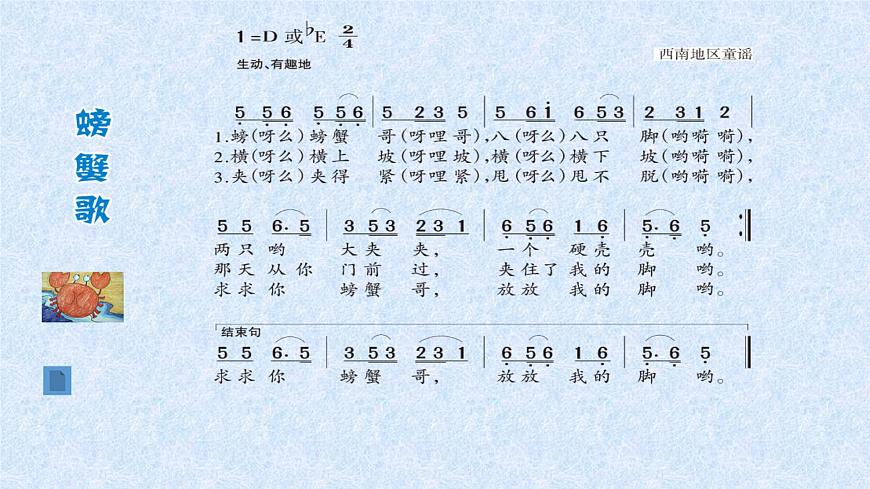 1=D 或♭E 2/4
生动、有趣地
西南地区童谣
螃蟹歌
5 5 6 5 5 6 | 5 2 3 5 | 5 6 i 6 5 3 | 2 3 1 2 |
1.螃(呀么)螃蟹 哥(呀哩哥),八(呀么)八只 脚(哟嗬嗬),
2.横(呀么)横上 坡(呀哩坡),横(呀么)横下 坡(哟嗬嗬),
3.夹(呀么)夹得 紧(呀哩紧),甩(呀么)甩不 脱(哟嗬嗬),
5 5 6· 5 | 3 5 3 2 3 1 | 6 5 6 1 6 | 5· 6 5 :‖
两只哟 大夹夹, 一个 硬壳壳 哟。
那天从你 门前过, 夹住了我的脚 哟。
求求你 螃蟹哥, 放放 我的脚 哟。
结束句
5 5 6· 5 | 3 5 3 2 3 1 | 6 5 6 1 6 | 5· 6 5 ‖
求求你 螃蟹哥, 放放 我的脚 哟。